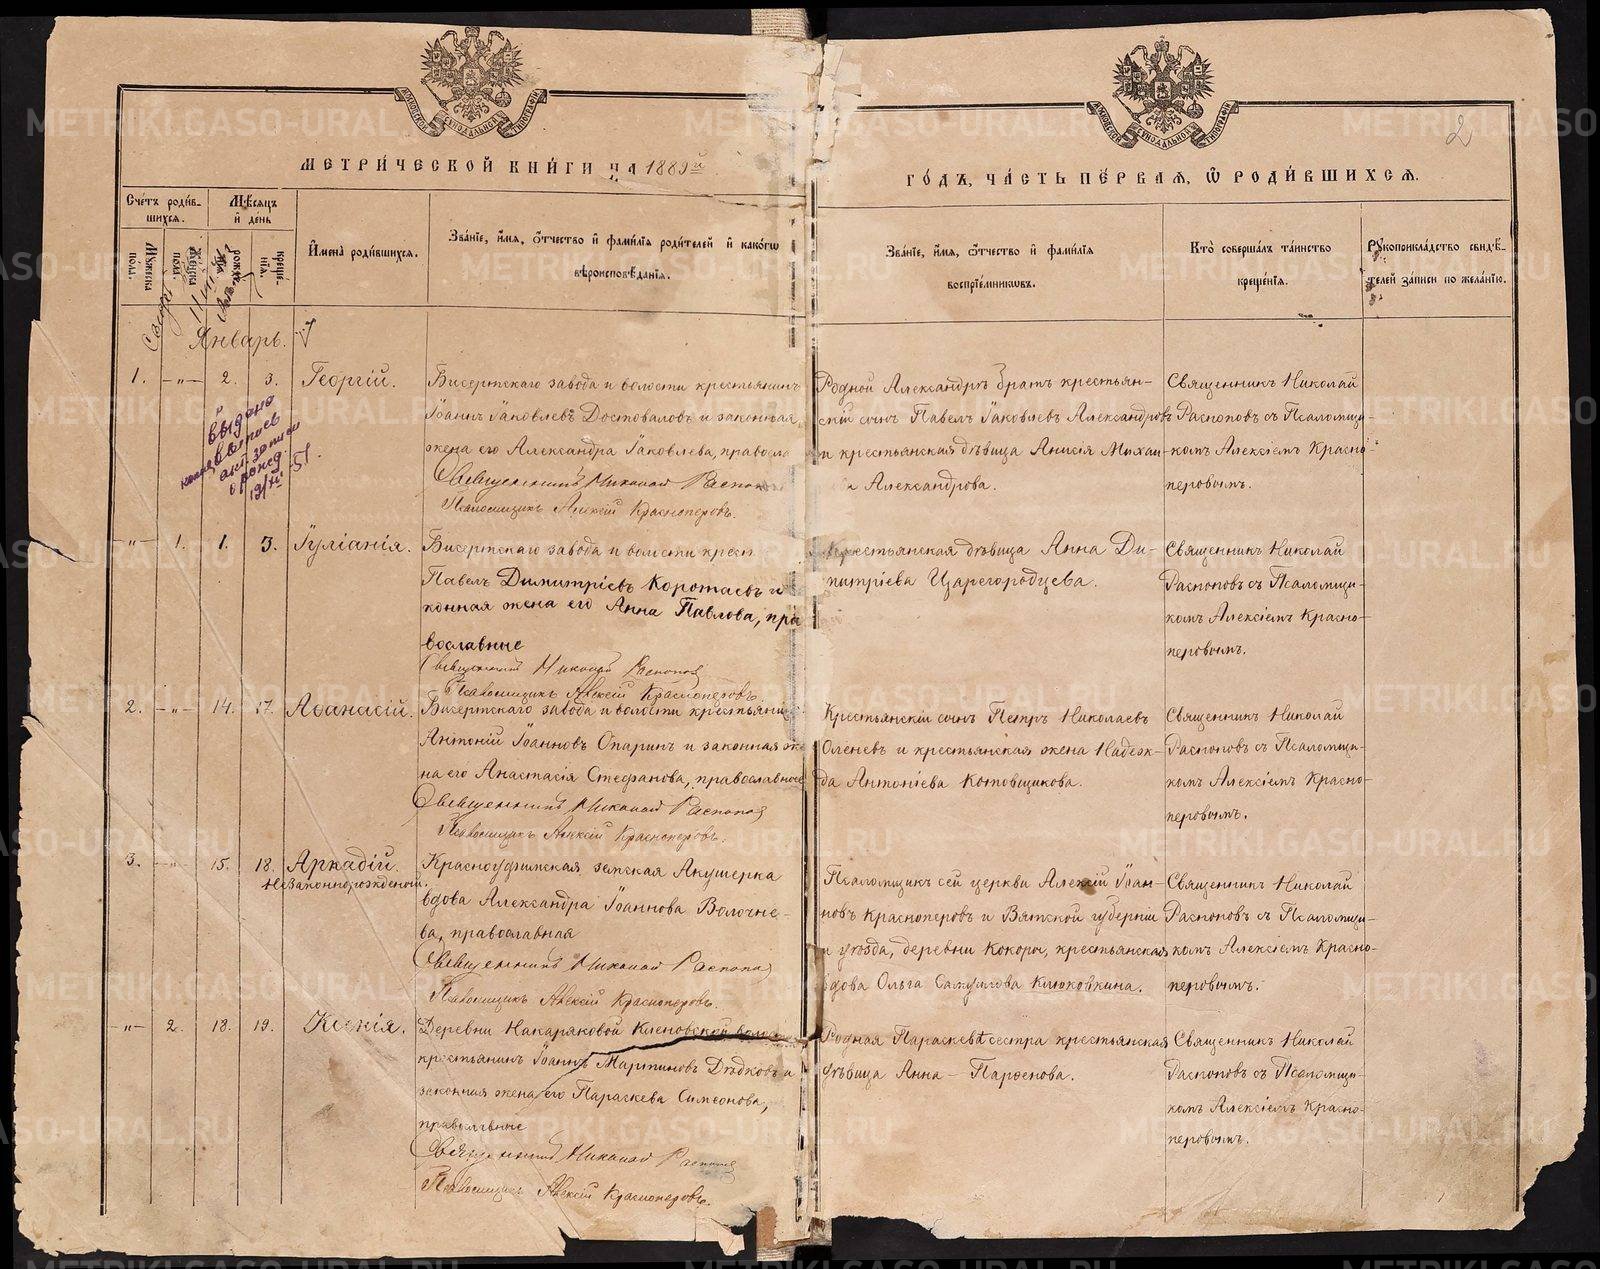 МОСКОВСКОЙ СѴНОДАЛЬНОЙ ТИПОГРАФІИ
МОСКОВСКОЙ СѴНОДАЛЬНОЙ ТИПОГРАФІИ
2
МЕТРИ́ЧЕСКОЙ КНИ́ГИ НА 1889й
ГО́ДЪ, ЧА́СТЬ ПЕ́РВАЯ, Ѽ РОДИ́ВШИХСЯ.
Сче́тъ роди́в-
шихся.
Мѣсяцъ
и день
Мужеска
пола.
Женска
пола.
рожде-
креще́-
нія.
Имена̀ роди́вшихся.
Зва́ніе, и́мя, ѻ́тчество и фами́лія роди́телей и како́гѡ
вѣроисповѣ́данія.
Зва́ніе, и́мя, ѻ́тчество и фами́лія
воспріе́мниковъ.
Кто̀ соверша́лъ та́инство
креще́нія.
Рꙋкоприкла́дство свидѣ́-
телей за́писи по жела́нію.
Январь.
1. —"— 2. 3. Георгій.
Бисертскаго завода и волости крестьянинъ
Іоаннъ Іаковлевъ Достоваловъ и законная
жена его Александра Іаковлева, правосла
Священникъ Николай Распопов
Псаломщикъ Алексій Красноперовъ.
Родной Александръ братъ крестьян-
скій сынъ Павелъ Іаковлевъ Александровъ
и крестьянская дѣвица Анисія Михаи-
Александрова.
Священникъ Николай
Распоповъ съ Псаломщи-
комъ Алексіемъ Красно-
перовымъ.
выдана
—"— 1. 1. 3. Іуліанія.
Бисертскаго завода и волости крест
Павелъ Димитріевъ Коротаевъ и
конная жена его Анна Павлова, пра
вославные
Священникъ Николай Распопов
Псаломщикъ Алексій Красноперовъ
Крестьянская дѣвица Анна Ди-
митріева Царегородцева.
Священникъ Николай
Распоповъ съ Псаломщи-
комъ Алексіемъ Красно-
перовымъ.
2. —"— 14. 17. Аѳанасій.
Бисертскаго завода и волости крестьянин
Антоній Іоанновъ Опаринъ и законная же
на его Анастасія Стефанова, православные
Священникъ Николай Распопов
Псаломщикъ Алексій Красноперовъ.
Крестьянскій сынъ Петръ Николаевъ
Оленевъ и крестьянская жена Надеж-
да Антоніева Котовщикова.
Священникъ Николай
Распоповъ съ Псаломщи-
комъ Алексіемъ Красно-
перовымъ.
3. —"— 15. 18. Аркадій.
незаконнорожденый.
Красноуфимская земская Акушерка
вдова Александра Іоаннова Волочне-
ва, православная
Священникъ Николай Распопов
Псаломщикъ Алексій Красноперовъ.
Псаломщикъ сей церкви Алексій Іоан-
новъ Красноперовъ и Вятской губерніи
и уѣзда, деревни Кокоры, крестьянская
вдова Ольга Самуилова Клюковкина.
Священникъ Николай
Распоповъ съ Псаломщи-
комъ Алексіемъ Красно-
перовымъ.
—"— 2. 18. 19. Ксенія.
Деревни Накаряковой Кленовской волос
крестьянинъ Іоаннъ Мартиновъ Дѣдковъ и
законная жена его Параскева Симеонова,
православные
Священникъ Николай Распопов
Псаломщикъ Алексій Красноперовъ.
Родная Параскевѣ сестра крестьянская
дѣвица Анна — Парѳенова.
Священникъ Николай
Распоповъ съ Псаломщи-
комъ Алексіемъ Красно-
перовымъ.
METRIKI.GASO-URAL.RU